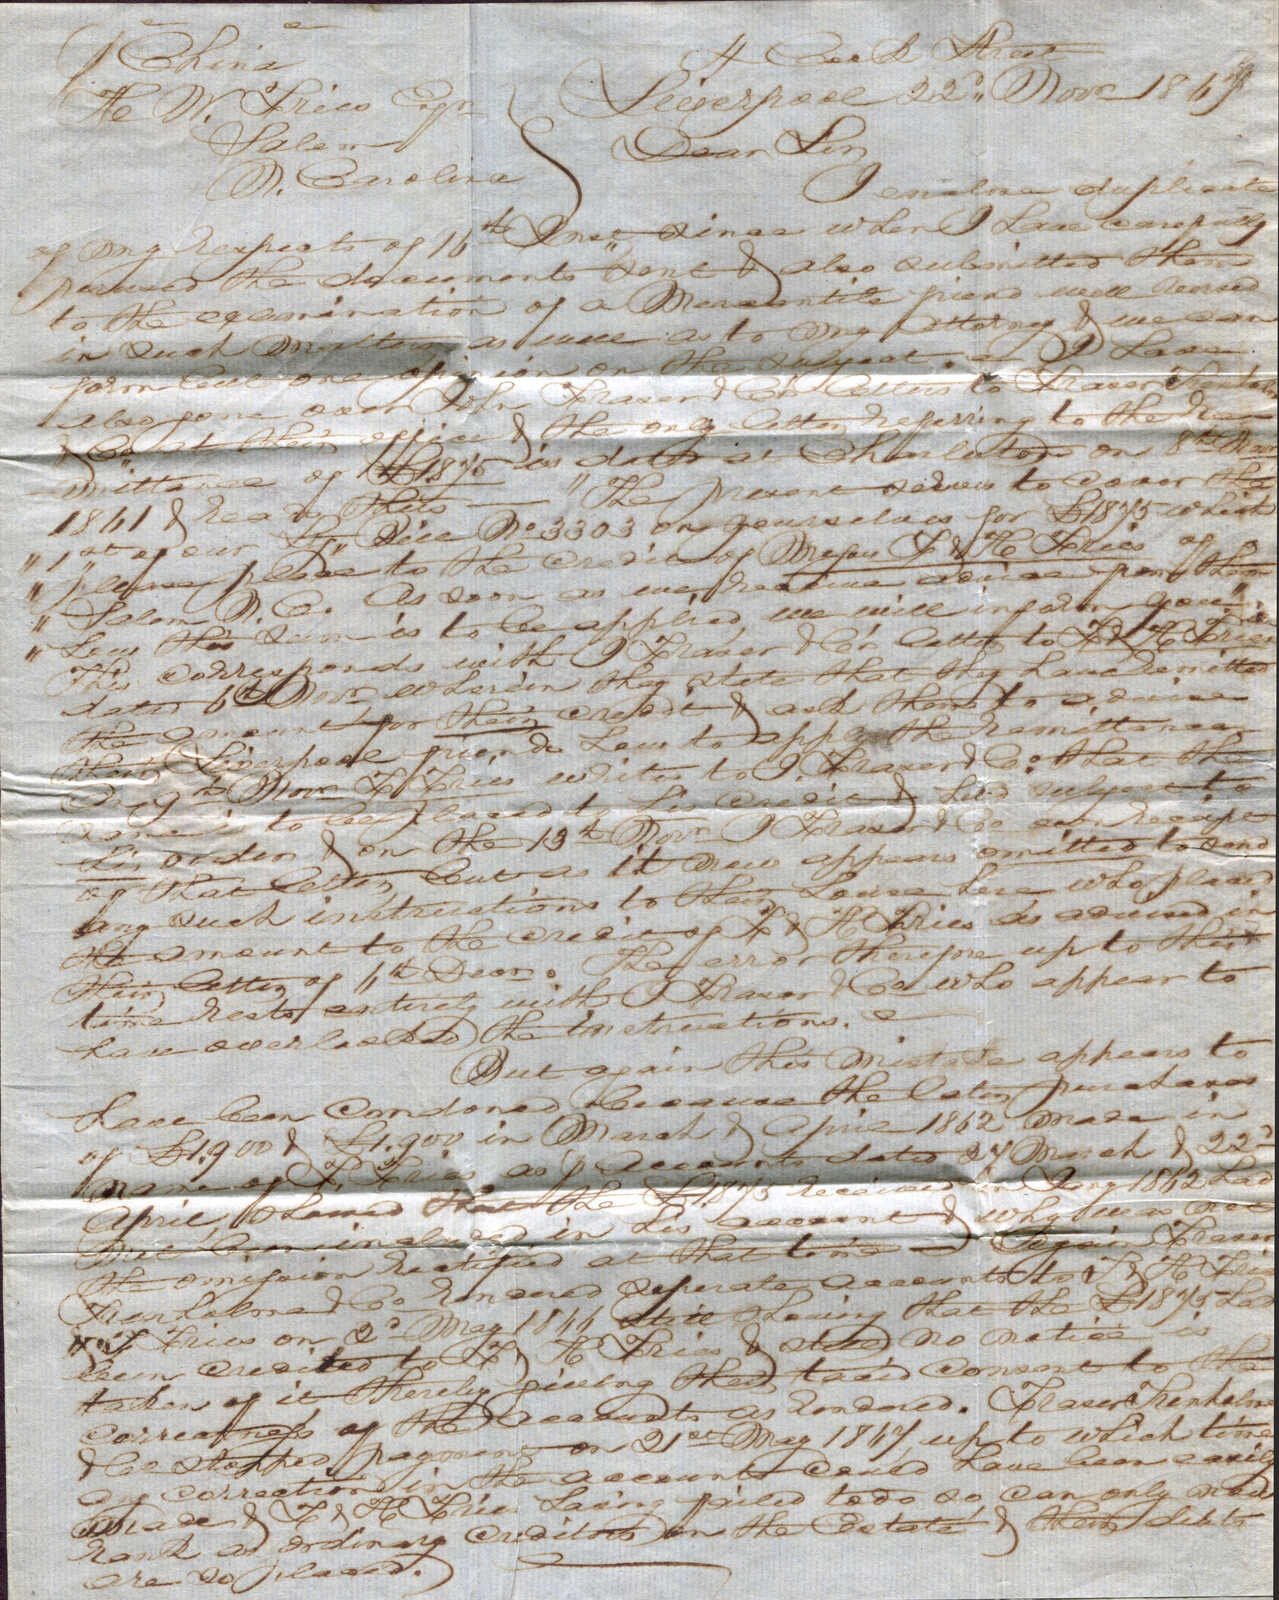 p China
H. W. Fries Esqr
Salem
N. Carolina
4 Cook Street
Liverpool 22d Novr 1867
Dear Sir
I enclose duplicate
of my respects of 16th Inst since when I have carefully
perused the documents sent & also submitted them
to the examination of a Mercantile friend well versed
in such matters as well as to my Attorney & we can
form but one opinion on the subject. I have
also gone over John Fraser & Co's letters to Fraser Trenholm
& Co at their office & the only letter referring to the re
mittance of £1875 is dated at Charleston on 8th
1861 & reads thus — "The present serves to cover the
" 1st of our Stg Bill No 3303 on yourselves for £1875 which
" please place to the credit of Messrs F & H Fries of
" Salem N. Ca. As soon as we receive advice from them
" how this sum is to be applied, we will inform you".
This corresponds with J Fraser & Co's letter to F & H Fries
dated 6th Novr wherein they state that they have remitted
the amount for their credit & ask them to advise
their Liverpool friends how to apply the remittance
On 9th Novr F Fries writes to J. Fraser & Co. that the
same is to be placed to his credit & held subject to
his order & on the 13th Novr J Fraser & Co own receipt
of that letter, but as it now appears omitted to send
any such instructions to their house here who placed
the amount to the credit of F & H Fries as advised in
their letter of The error therefore up to this
time rests entirely with J Fraser & Co who appear to
have overlooked the instructions.
But again this mistake appears to
have been condoned because the later purchases
of £1,900 & £1,900 in March & April 1862 made in
name of F. Fries as p Accounts dated 27 March & 22d
April, showed that the £1875 received in Jany 1862 had
not been included in his account & why was not
the omission rectified at that time — Again Fraser
Trenholm & Co rendered separate accounts to F & H Fries
& F Fries on 2d May 1864 still showing that the £1875 had
been credited to F & H Fries & still no notice is
taken of it thereby giving their tacit consent to the
correctness of the accounts as rendered. Fraser Trenholm
& Co stopped payment on 21st May 1867, up to which time
any correction in the accounts could have been easily
made & F & H Fries having failed to do so, can only now
rank as ordinary creditors on the Estate & their debts
are so placed.